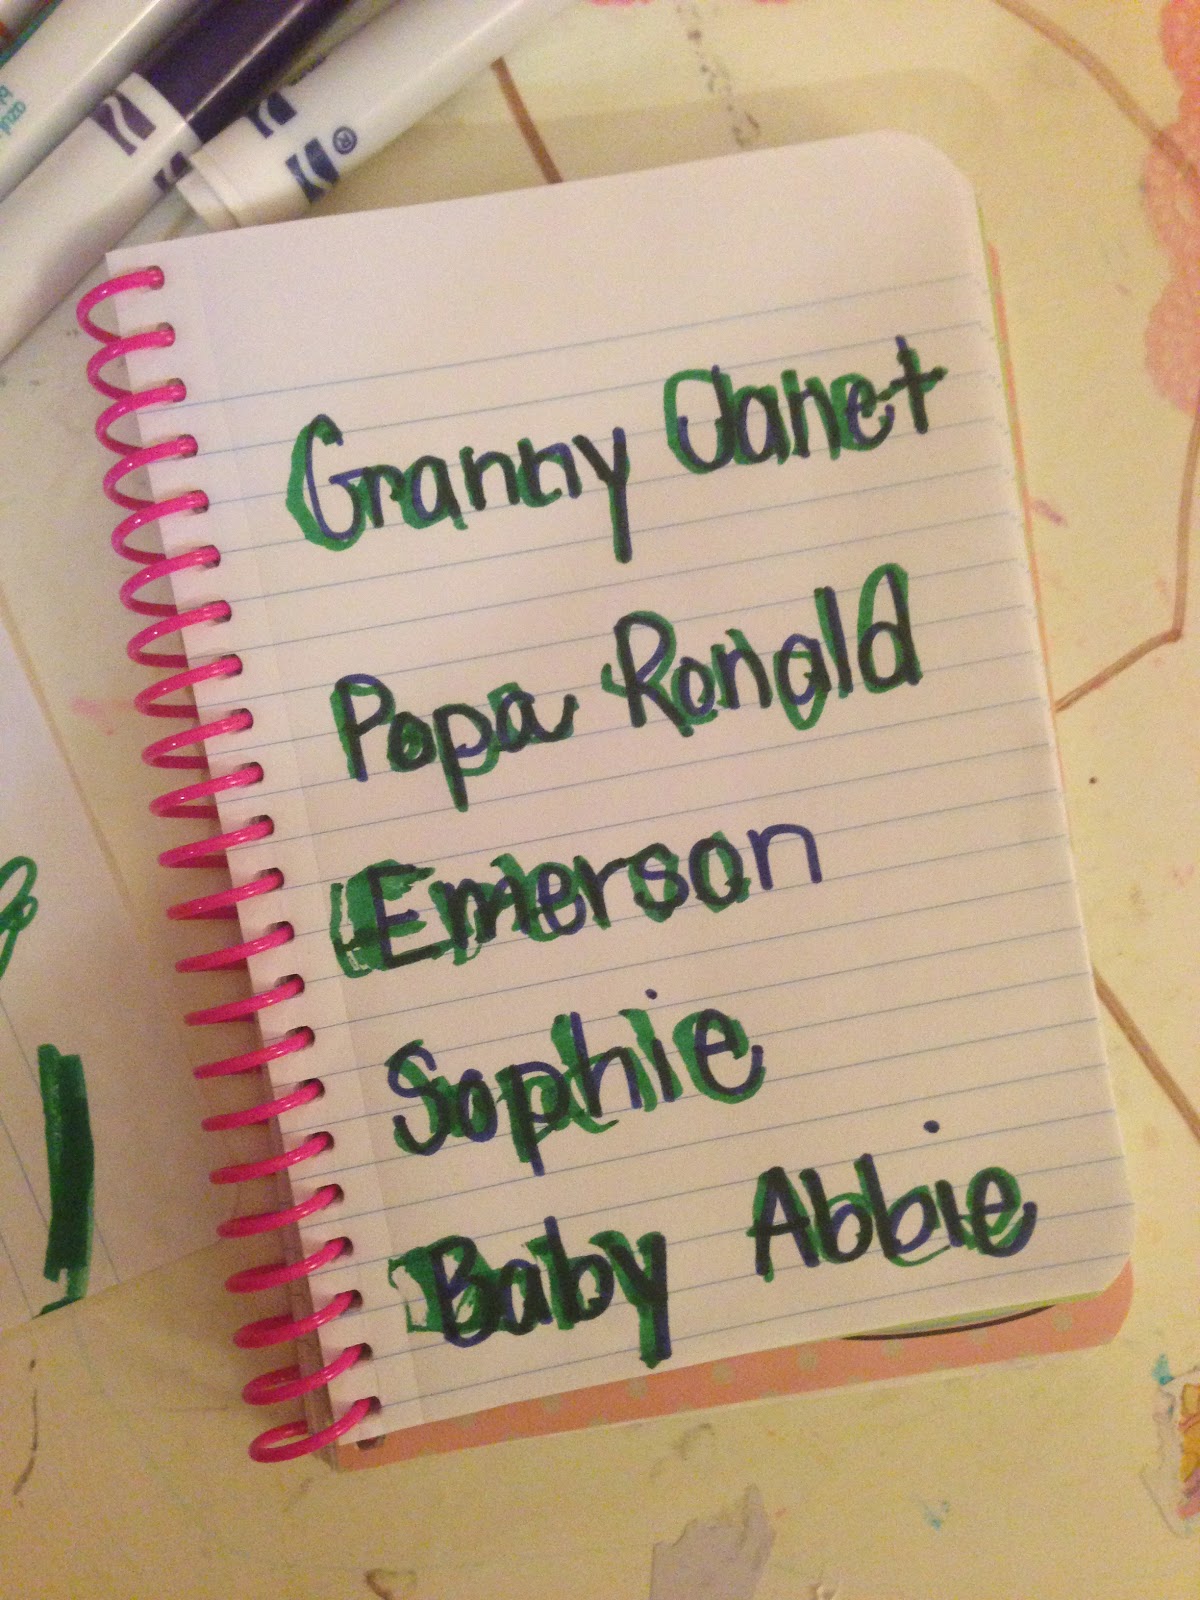 azul
Granny Janet
Popa Ronald
Emerson
Sophie
Baby Abbie